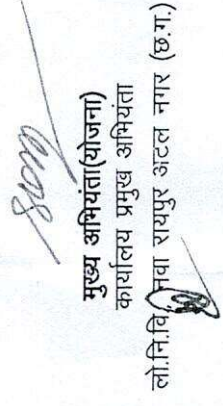 मुख्य अभियंता(योजना)
कार्यालय प्रमुख अभियंता
लो.नि.वि. नवा रायपुर अटल नगर (छ.ग.)